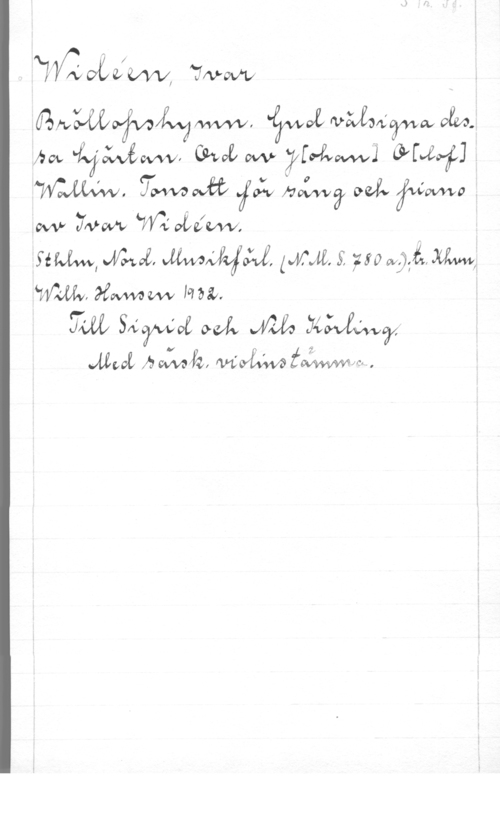 Widéen, Ivar
Bröllopshymn. Gud välsigna des-
sa hjärtan. Ord av J[ohan] O[lof]
Wallin. Tonsatt för sång och piano
av Ivar Widéen.
Sthlm, Nord. Musikförl. (N.M.S. 780 a.), tr. Khvn,
Wilh. Hansen 1932.
Till Sigrid och Nils Körling.
Med särsk. violinstämma.